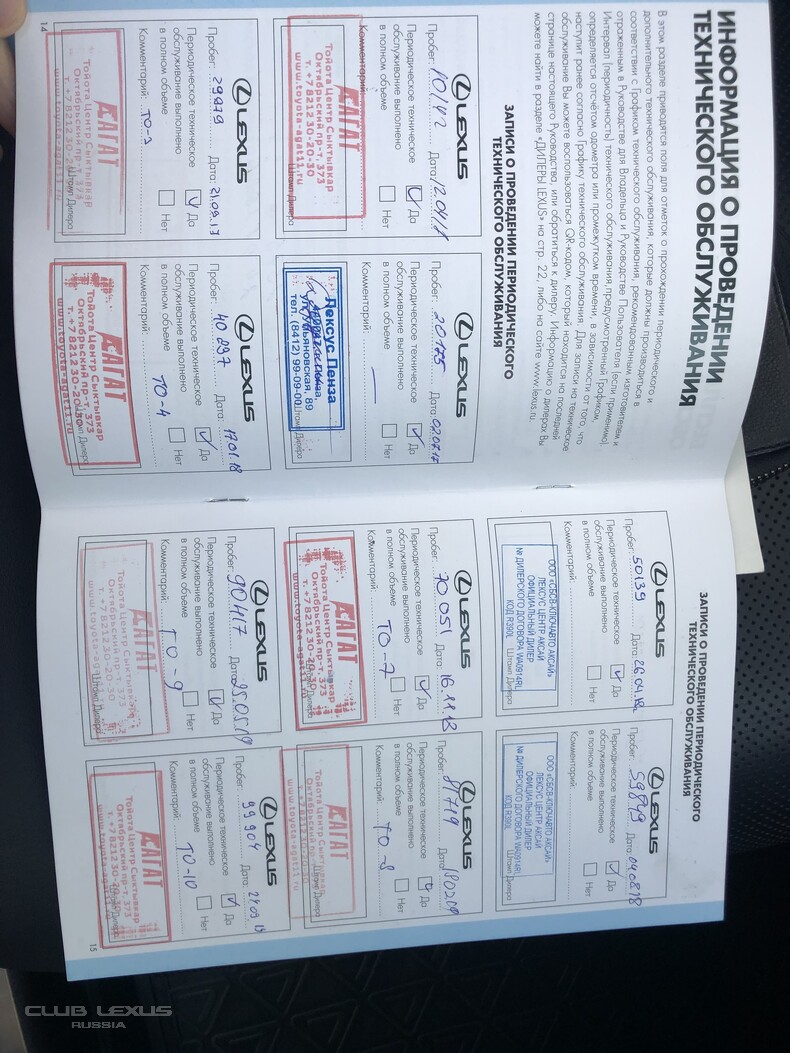 ИНФОРМАЦИЯ О ПРОВЕДЕНИИ
ТЕХНИЧЕСКОГО ОБСЛУЖИВАНИЯ
В этом разделе приводятся поля для отметок о прохождении периодического и
дополнительного технического обслуживания, которые должны производиться в
соответствии с Графиком технического обслуживания, рекомендованным изготовителем и
отраженным в Руководстве для Владельца и Руководстве Пользователя (если применимо).
Интервал (периодичность) технического обслуживания, предусмотренный Графиком,
определяется отсчётом одометра или промежутком времени, в зависимости от того, что
наступит ранее согласно Графику технического обслуживания. Для записи на техническое
обслуживание Вы можете воспользоваться QR-кодом, который находится на последней
странице настоящего Руководства, или обратиться к дилеру. Информацию о дилерах Вы
можете найти в разделе «ДИЛЕРЫ LEXUS» на стр. 22, либо на сайте www.lexus.ru.
ЗАПИСИ О ПРОВЕДЕНИИ ПЕРИОДИЧЕСКОГО
ТЕХНИЧЕСКОГО ОБСЛУЖИВАНИЯ
LEXUS
Пробег: Дата:
Периодическое техническое
обслуживание выполнено
в полном объеме
Да
Нет
Комментарий:
АГАТ
Тойота Центр Сыктывкар
Октябрьский пр-т, 373
т. +7 8212 30-20-30
www.toyota-agat11.ru
Штамп Дилера
LEXUS
Пробег: 20175 Дата: 02.07.17
Периодическое техническое
обслуживание выполнено
в полном объеме
Да
Нет
Комментарий:
Лексус Пенза
ул. Ульяновская, 89
тел. (8412) 99-09-00
Штамп Дилера
LEXUS
Пробег: 29979 Дата: 21.09.17
Периодическое техническое
обслуживание выполнено
в полном объеме
Да
Нет
Комментарий: ТО-3
АГАТ
Тойота Центр Сыктывкар
Октябрьский пр-т, 373
т. +7 8212 30-20-30
www.toyota-agat11.ru
Штамп Дилера
LEXUS
Пробег: 40297 Дата: 17.01.18
Периодическое техническое
обслуживание выполнено
в полном объеме
Да
Нет
Комментарий: ТО-4
АГАТ
Тойота Центр Сыктывкар
Октябрьский пр-т, 373
т. +7 8212 30-20-30
www.toyota-agat11.ru
Штамп Дилера
14
ЗАПИСИ О ПРОВЕДЕНИИ ПЕРИОДИЧЕСКОГО
ТЕХНИЧЕСКОГО ОБСЛУЖИВАНИЯ
LEXUS
Пробег: 50139 Дата: 26.04.18
Периодическое техническое
обслуживание выполнено
в полном объеме
Да
Нет
Комментарий:
ООО «СБСВ-КЛЮЧАВТО АКСАЙ»
ЛЕКСУС ЦЕНТР АКСАЙ
ОФИЦИАЛЬНЫЙ ДИЛЕР
№ ДИЛЕРСКОГО ДОГОВОРА WA0914RL
КОД R390L
Штамп Дилера
LEXUS
Пробег: 59849 Дата: 04.08.18
Периодическое техническое
обслуживание выполнено
в полном объеме
Да
Нет
Комментарий:
ООО «СБСВ-КЛЮЧАВТО АКСАЙ»
ЛЕКСУС ЦЕНТР АКСАЙ
ОФИЦИАЛЬНЫЙ ДИЛЕР
№ ДИЛЕРСКОГО ДОГОВОРА WA0914RL
КОД R390L
Штамп Дилера
LEXUS
Пробег: 70051 Дата: 16.11.18
Периодическое техническое
обслуживание выполнено
в полном объеме
Да
Нет
Комментарий: ТО-7
АГАТ
Тойота Центр Сыктывкар
Октябрьский пр-т, 373
т. +7 8212 30-20-30
www.toyota-agat11.ru
Штамп Дилера
LEXUS
Пробег: 81719 Дата:
Периодическое техническое
обслуживание выполнено
в полном объеме
Да
Нет
Комментарий: ТО-8
АГАТ
Тойота Центр Сыктывкар
Октябрьский пр-т, 373
т. +7 8212 30-20-30
www.toyota-agat11.ru
Штамп Дилера
LEXUS
Пробег: 90417 Дата:
Периодическое техническое
обслуживание выполнено
в полном объеме
Да
Нет
Комментарий: ТО-9
АГАТ
Тойота Центр Сыктывкар
Октябрьский пр-т, 373
т. +7 8212 30-20-30
www.toyota-agat11.ru
Штамп Дилера
LEXUS
Пробег: 99904 Дата:
Периодическое техническое
обслуживание выполнено
в полном объеме
Да
Нет
Комментарий: ТО-10
АГАТ
Тойота Центр Сыктывкар
Октябрьский пр-т, 373
т. +7 8212 30-20-30
www.toyota-agat11.ru
Штамп Дилера
15
CLUB LEXUS
RUSSIA